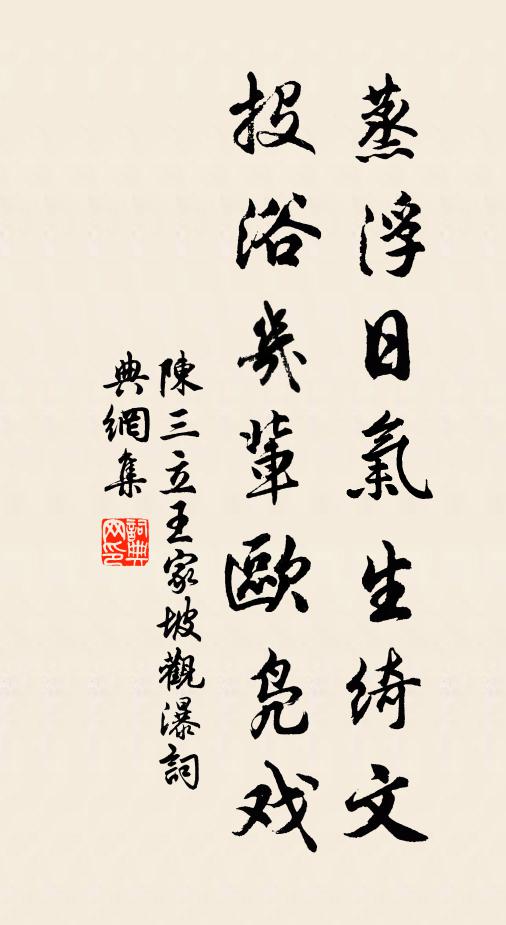 蒸浮日氣生綺文
投浴幾輩歐凫戏
陳三立王家坡觀瀑詞
典網集
詞典
网印